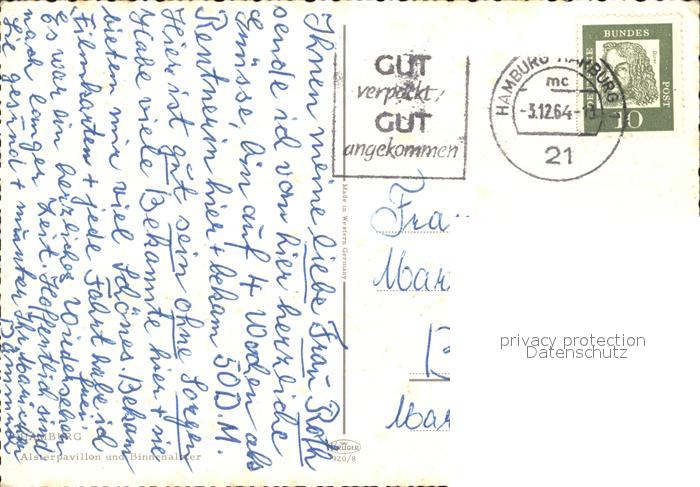 Ihnen meine liebe Frau Roth
sende ich von hier herzliche
Grüsse bin auf 4 Wochen als
Rentnerin hier + bekam 50 D.M.
Hier ist gut sein ohne Sorgen
habe viele Bekannte hier + sie
bieten mir viel Schönes. Bekam
Filmkarten + jede Fahrt habe ich frei.
Es war ein herzliches Wiedersehen
nach langer Zeit. Hoffentlich sind
Sie gesund + munter Ihr
HAMBURG
Alsterpavillon und Binnenalster
Made in Western Germany
KRÜGER
920/8
GUT
verpackt,
GUT
angekommen
HAMBURG HAMBURG
mc
-3.12.64-
21
BUNDES
POST
10
Fra
Mar
Mar
privacy protection
Datenschutz